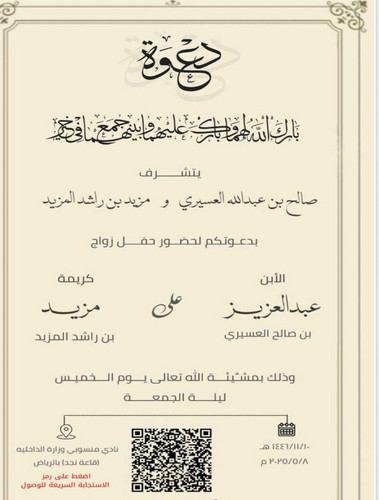 دعوة
بارك الله لهما وبارك عليهما وجمع بينهما في خير
يتشرف
صالح بن عبدالله العسيري و مزيد بن راشد المزيد
بدعوتكم لحضور حفل زواج
الأبن
كريمة
عبدالعزيز على مزيد
بن صالح العسيري
بن راشد المزيد
وذلك بمشيئة الله تعالى يوم الخميس
ليلة الجمعة
١٤٤٦/١١/١٠ هـ
٢٠٢٥/٥/٨ م
نادي منسوبي وزارة الداخليه
(قاعة نجد) بالرياض
اضغط على رمز
الاستجابة السريعة للوصول